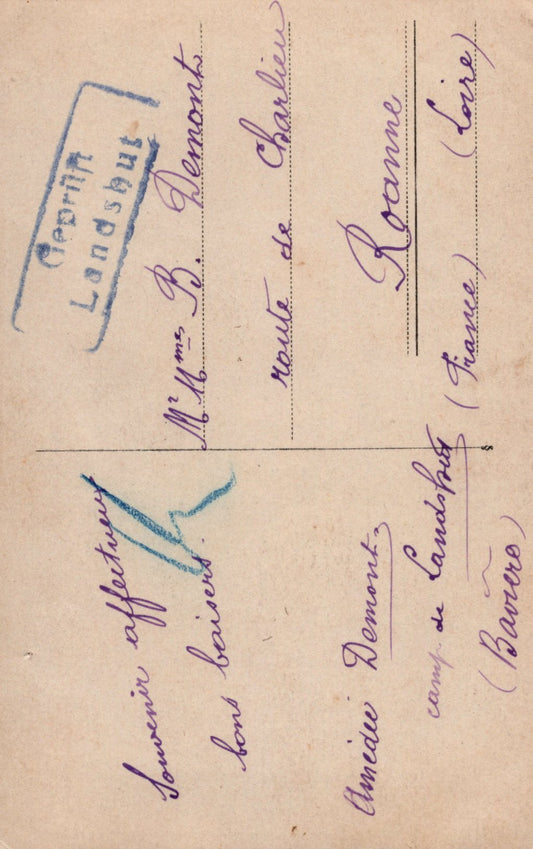 Souvenir affectueux
bons baisers.
Amédée Demont
camp de Landshut
(Bavière)
Geprüft
Landshut
Mr Mme B. Demont
route de Charlieu
Roanne
(France) (Loire)